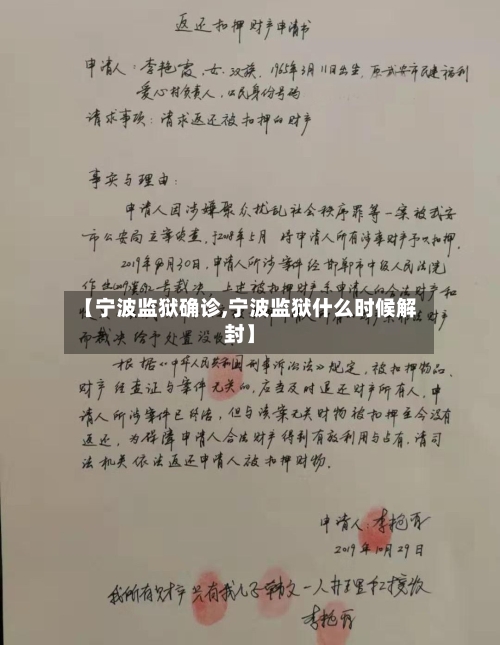 返还扣押财产申请书
申请人：李艳霞，女，汉族，1965年3月11日出生，原武安市民建福利
爱心村负责人，公民身份号码
请求事项：请求返还被扣押的财产
事实与理由：
申请人因涉嫌聚众扰乱社会秩序罪等一案被武安
市公安局立案侦查，于2018年5月 将申请人所有涉案财产予以扣押。
2019年 月30日，申请人所涉案件经邯郸市中级人民法院
作出 号裁决，上述被扣押财产系申请人的合法财产和
【宁波监狱确诊,宁波监狱什么时候解
封】
而裁决给予处置没收
根据《中华人民共和国刑事诉讼法》规定，被扣押物品、
财产经查证与案件无关的，应当及时退还财产所有人，申
请人所涉案件已终结，但与该案无关财物被扣押至今没有
返还，为保障申请人合法财产得到有效利用与占有，请司
法机关依法返还申请人被扣押财物。
申请人：李艳霞
2019年10月29日
我所有财产只有我儿子 文一人井 权
李艳霞